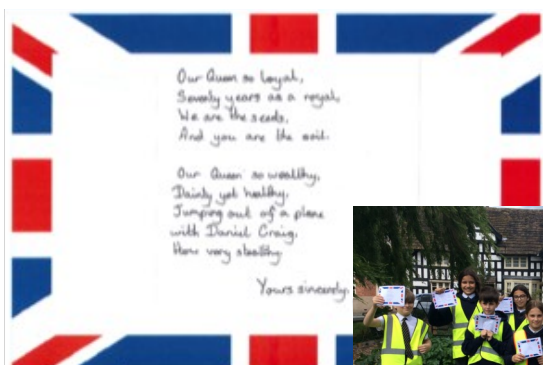 Our Queen so loyal,
Seventy years as a royal,
We are the seeds,
And you are the soil.
Our Queen so wealthy,
Dainty yet healthy.
Jumping out of a plane
with Daniel Craig.
How very stealthy.
Yours sincerely.